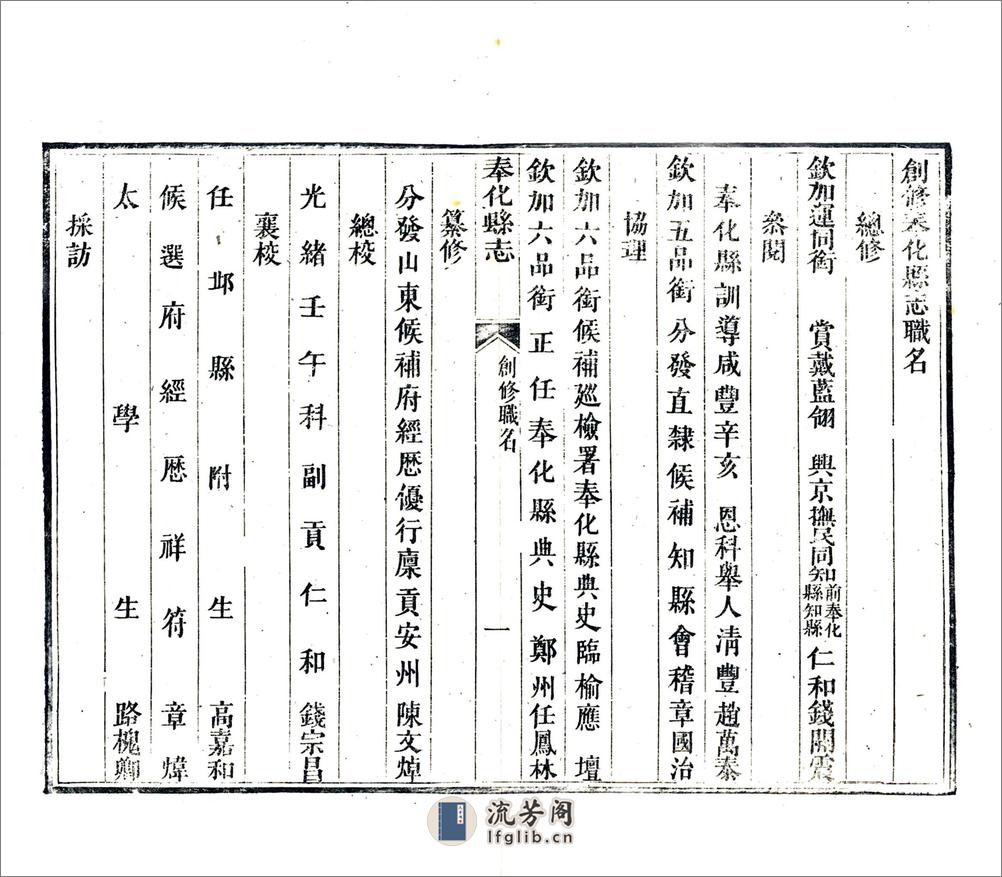 創修奉化縣志職名
總修
欽加運同銜 賞戴藍翎 興京撫民同知前奉化縣知縣仁和錢開震
叅閱
奉化縣訓導咸豐辛亥 恩科舉人清豐趙萬泰
欽加五品銜分發直隸候補知縣會稽章國治
協理
欽加六品銜候補巡檢署奉化縣典史臨榆應壇
欽加六品銜正任奉化縣典史鄭州任鳳林
奉化縣志 創修職名 一
纂修
分發山東候補府經厯優行廩貢安州陳文焯
總校
光緒壬午科副貢仁和錢宗昌
襄校
任邱縣附生高嘉和
候選府經厯祥符章煒
太學生路槐卿
採訪
流芳阁
lfglib.cn